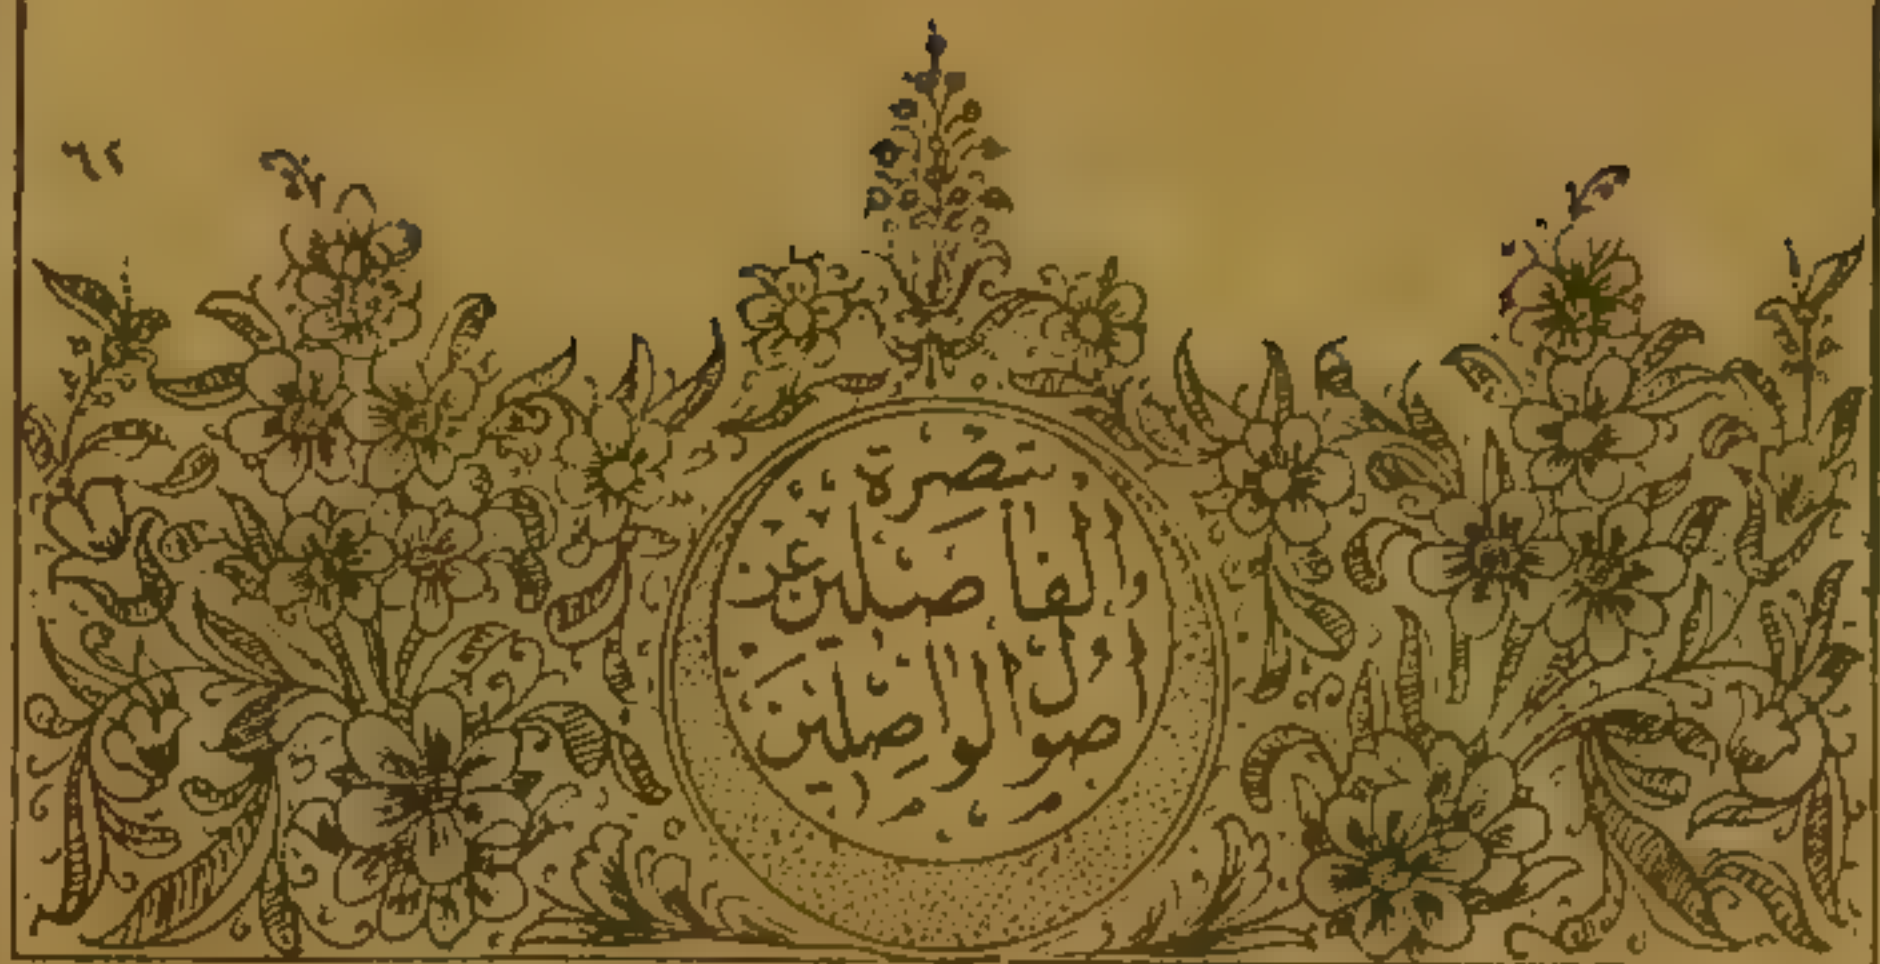 ٦٢
تبصرة
الفاصلين عن
اصول الواصلين